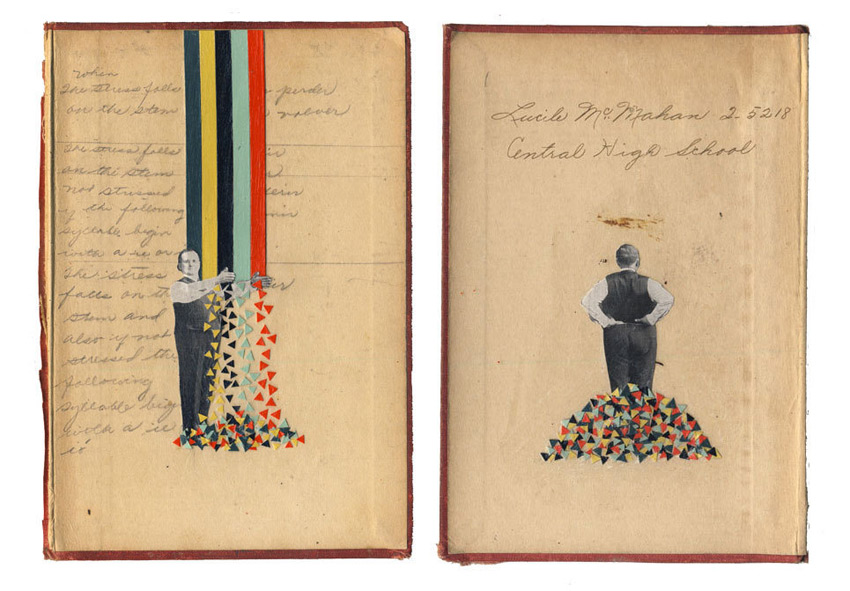 when
The stress falls
on the stem
perder
volver
The stress falls
on the stem
not stressed
if the following
syllable begin
with a ie or
The stress
falls on th
stem and
also if not
stressed the
following
syllable beg
with a ie
Lucile McMahan 2-5218
Central High School